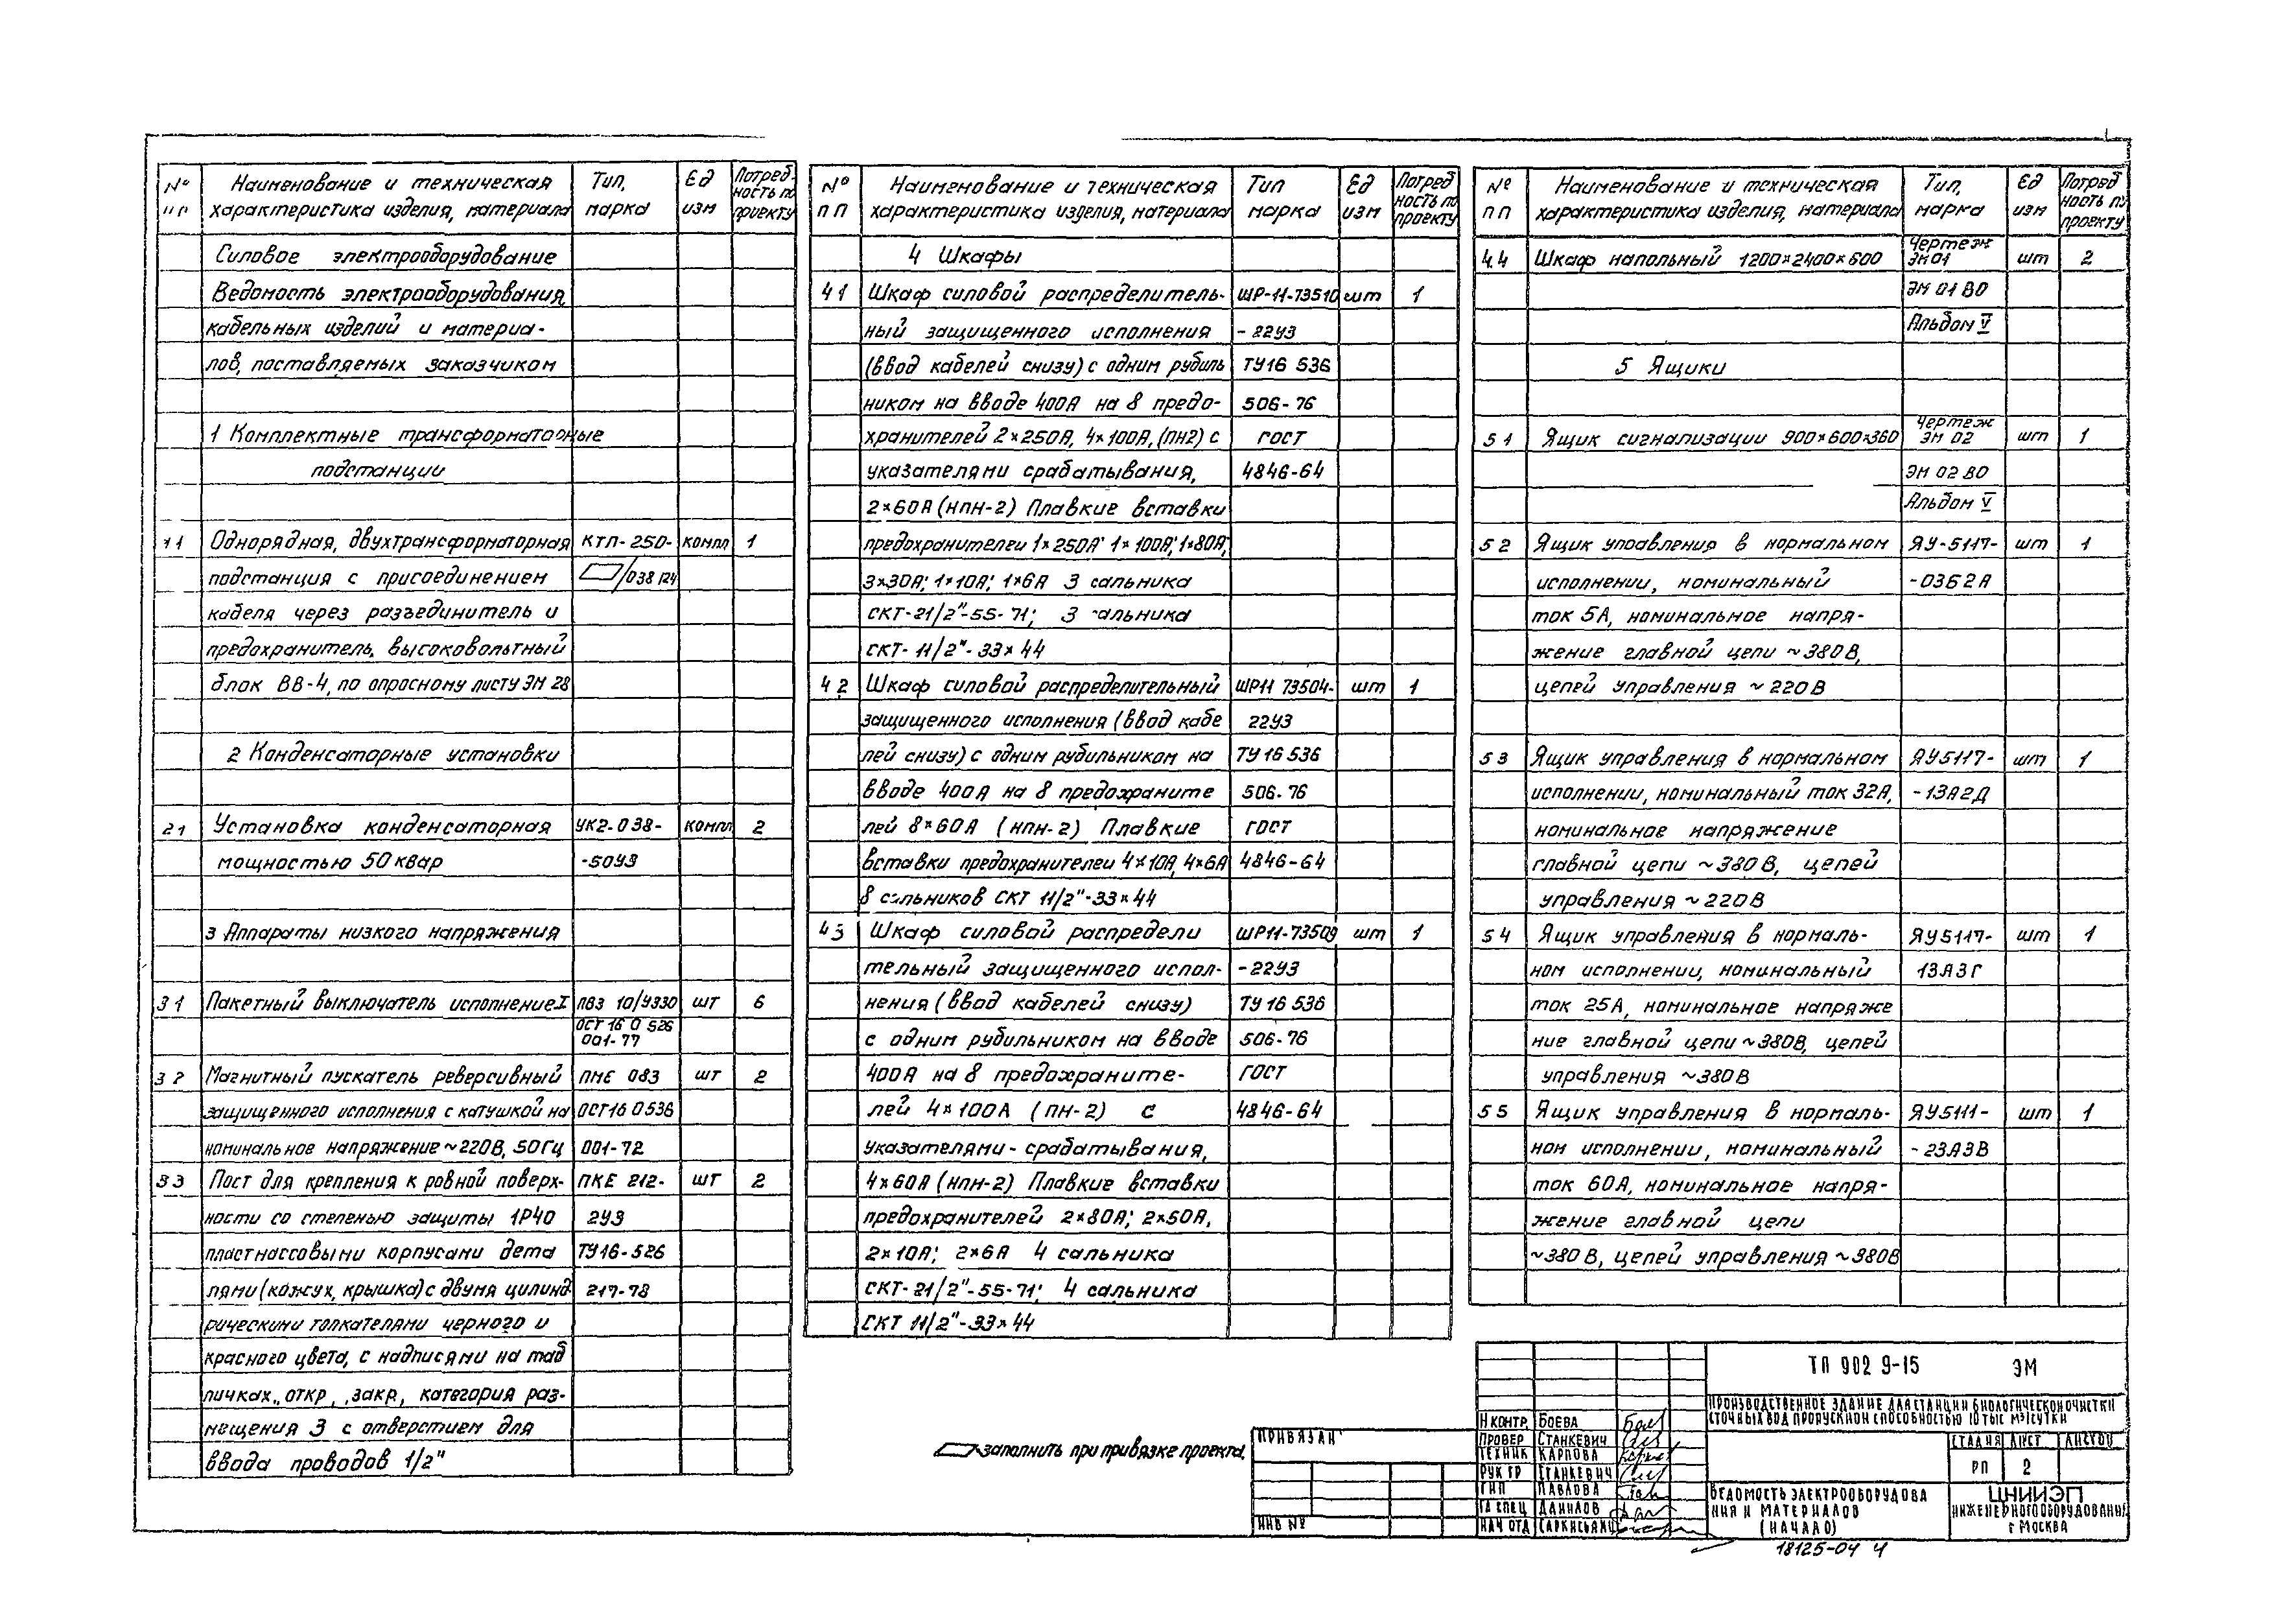 № пп | Наименование и техническая характеристика изделия, материала | Тип, марка | Ед изм | Потребность по проекту
Силовое электрооборудование
Ведомость электрооборудования,
кабельных изделий и материа-
лов, поставляемых заказчиком
1 Комплектные трансформаторные
подстанции
11 Однорядная, двухтрансформаторная КТП-250- компл 1
подстанция с присоединением /038 124
кабеля через разъединитель и
предохранитель. высоковольтный
блок ВВ-4, по опросному листу ЭМ 28
2 Конденсаторные установки
21 Установка конденсаторная УК2-038- компл 2
мощностью 50 квар -50У3
3 Аппараты низкого напряжения
31 Пакетный выключатель исполнение I ПВ3 10/У330 шт 6
ОСТ 16 0 526
001-77
32 Магнитный пускатель реверсивный ПМЕ 083 шт 2
защищенного исполнения с катушкой на ОСТ16 0536
номинальное напряжение ~220В, 50Гц 001-72
33 Пост для крепления к ровной поверх- ПКЕ 212- шт 2
ности со степенью защиты 1Р40 2У3
пластмассовыми корпусами дета ТУ16-526
лями (кожух, крышка) с двумя цилинд 217-78
рическими толкателями черного и
красного цвета, с надписями на таб
личках,, откр, ,,закр, категория раз-
мещения 3 с отверстием для
ввода проводов 1/2"
№ пп | Наименование и техническая характеристика изделия, материала | Тип марка | Ед изм | Потребность по проекту
4 Шкафы
41 Шкаф силовой распределитель- ШР-11-73510 шт 1
ный защищенного исполнения - 22У3
(ввод кабелей снизу) с одним рубиль ТУ16 536
ником на вводе 400А на 8 предо- 506-76
хранителей 2×250А, 4×100А, (ПН2) с ГОСТ
указателями срабатывания, 4846-64
2×60А (НПН-2) Плавкие вставки
предохранителей 1×250А; 1×100А; 1×80А;
3×30А; 1×10А; 1×6А 3 сальника
СКТ-21/2"-55-71; 3 альника
СКТ- 11/2"-33×44
42 Шкаф силовой распределительный ШР11 73504- шт 1
защищенного исполнения (ввод кабе 22У3
лей снизу) с одним рубильником на ТУ 16 536
вводе 400А на 8 предохраните 506-76
лей 8×60А (НПН-2) Плавкие ГОСТ
вставки предохранителей 4×10А, 4×6А 4846-64
8 сальников СКТ 11/2"-33×44
43 Шкаф силовой распредели ШР11-73509 шт 1
тельный защищенного испол- -22У3
нения (ввод кабелей снизу) ТУ 16 536
с одним рубильником на вводе 506-76
400А на 8 предохраните- ГОСТ
лей 4×100А (ПН-2) с 4846-64
указателями-срабатывания,
4×60А (НПН-2) Плавкие вставки
предохранителей 2×80А; 2×50А,
2×10А; 2×6А 4 сальника
СКТ-21/2"-55-71; 4 сальника
СКТ 11/2"-33×44
№ пп | Наименование и техническая характеристика изделия, материала | Тип, марка | Ед изм | Потребность по проекту
4.4 Шкаф напольный 1200×2400×600 Чертеж ЭМ01 шт 2
ЭМ 01 ВО
Альбом V
5 Ящики
51 Ящик сигнализации 900×600×360 Чертеж ЭМ 02 шт 1
ЭМ 02 ВО
Альбом V
52 Ящик управления в нормальном ЯУ-5117- шт 1
исполнении, номинальный -03Б2А
ток 5А, номинальное напря-
жение главной цепи ~380В,
цепей управления ~220В
53 Ящик управления в нормальном ЯУ5117- шт 1
исполнении, номинальный ток 32А, -13А2Д
номинальное напряжение
главной цепи ~380В, цепей
управления ~220В
54 Ящик управления в нормаль- ЯУ5117- шт 1
ном исполнении, номинальный 13А3Г
ток 25А, номинальное напряже
ние главной цепи ~380В, цепей
управления ~380В
55 Ящик управления в нормаль- ЯУ5111- шт 1
ном исполнении, номинальный -23А3В
ток 60А, номинальное напря-
жение главной цепи
~380В, цепей управления ~380В
-заполнить при привязке проекта.
ПРИВЯЗАН
ИНВ №
ТП 902 9-15 ЭМ
ПРОИЗВОДСТВЕННОЕ ЗДАНИЕ ДЛЯ СТАНЦИИ БИОЛОГИЧЕСКОЙ ОЧИСТКИ
СТОЧНЫХ ВОД ПРОПУСКНОЙ СПОСОБНОСТЬЮ 10 ТЫС М3/СУТКИ
Н КОНТР. БОЕВА
ПРОВЕР СТАНКЕВИЧ
ТЕХНИК КАРПОВА
РУК ГР СТАНКЕВИЧ
ГИП ПАВЛОВА
ГЛ СПЕЦ ДАНИЛОВ
НАЧ ОТД САРКИСЬЯНЦ
СТАДИЯ ЛИСТ ЛИСТОВ
РП 2
ВЕДОМОСТЬ ЭЛЕКТРООБОРУДОВА
НИЯ И МАТЕРИАЛОВ
(НАЧАЛО)
ЦНИИЭП
ИНЖЕНЕРНОГО ОБОРУДОВАНИЯ
Г МОСКВА
18125-04 4